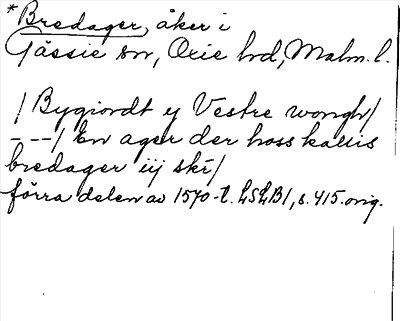 *Bredager, åker i
Gässie sn, Oxie hd, Malm. l.
/Bygiordt y Vestre wongh/
- - -/ En ager der hoss kallis
bredager iij skr/
förra delen av 1570-t. LSLB1, s. 415. orig.